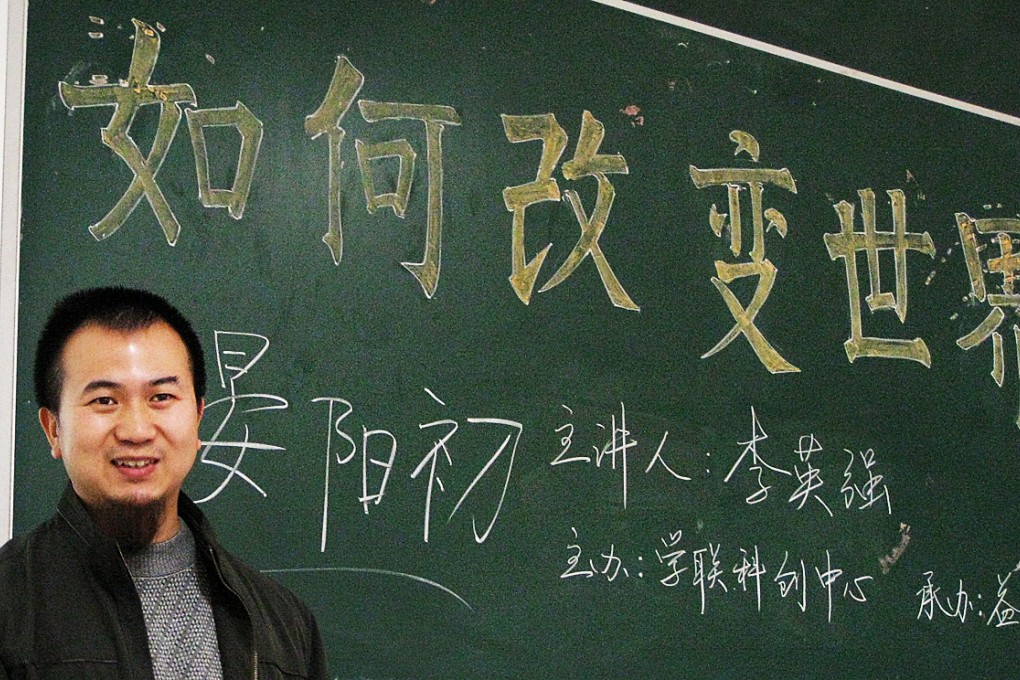 如何改变世界
晏阳初
主讲人：李英强
主办：学联科创中心 承办：益